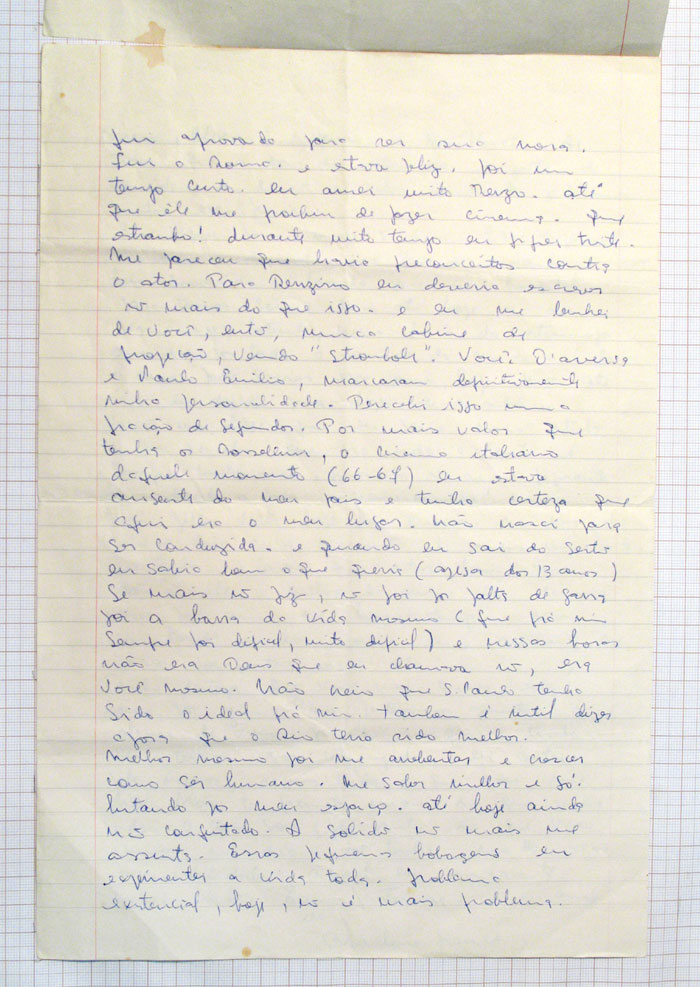 fui aprovada para ser sua nora.
Fui a Roma. e estava feliz. foi um
tempo curto. eu amei muito Renzo. até
que êle me proibiu de fazer cinema. que
estranho! durante muito tempo eu fiquei triste.
Me pareceu que havia preconceitos contra
o ator. Para Renzino eu deveria escrever
nõ mais do que isso. e eu me lembrei
de você, entõ, numa cabine de
projeção, vendo "Stromboli". Você D'aversa
e Paulo Emilio, marcaram definitivamente
minha personalidade. Percebi isso numa
fração de segundos. Por mais valor que
tenha os Rossellini, o cinema italiano
daquele momento (66-67) eu estava
ausente do meu pais e tinha certeza que
aqui era o meu lugar. Não nasci para
ser conduzida. e quando eu sai do Sertõ
eu sabia bem o que queria (apesar dos 13 anos)
Se mais nõ fiz, nõ foi por falta de garra
foi a barra da vida mesmo (que prá mim
sempre foi dificil, muito dificil) e nessas horas
não era Deus que eu chamava nõ, era
você mesmo. Não creio que S. Paulo tenha
sido o ideal prá mim. também é inutil dizer
agora que o Rio teria sido melhor.
Melhor mesmo foi me aguentar e crescer
como ser humano. Me saber mulher e só.
lutando por meu espaço. até hoje ainda
nõ conquistado. A solidõ nõ mais me
assusta. Essas pequenas bobagens eu
experimentei a vida toda. problema
existencial, hoje, nõ é mais problema.